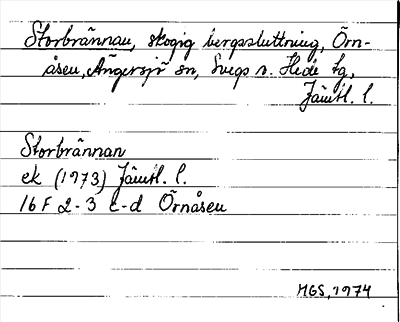 Storbrännan, skogig bergssluttning, Örn-
åsen, Ängersjö sn, Svegs o. Hede tg,
Jämtl. l.
Storbrännan
ek (1973) Jämtl. l.
16 F 2-3 c-d Örnåsen
MGS, 1974